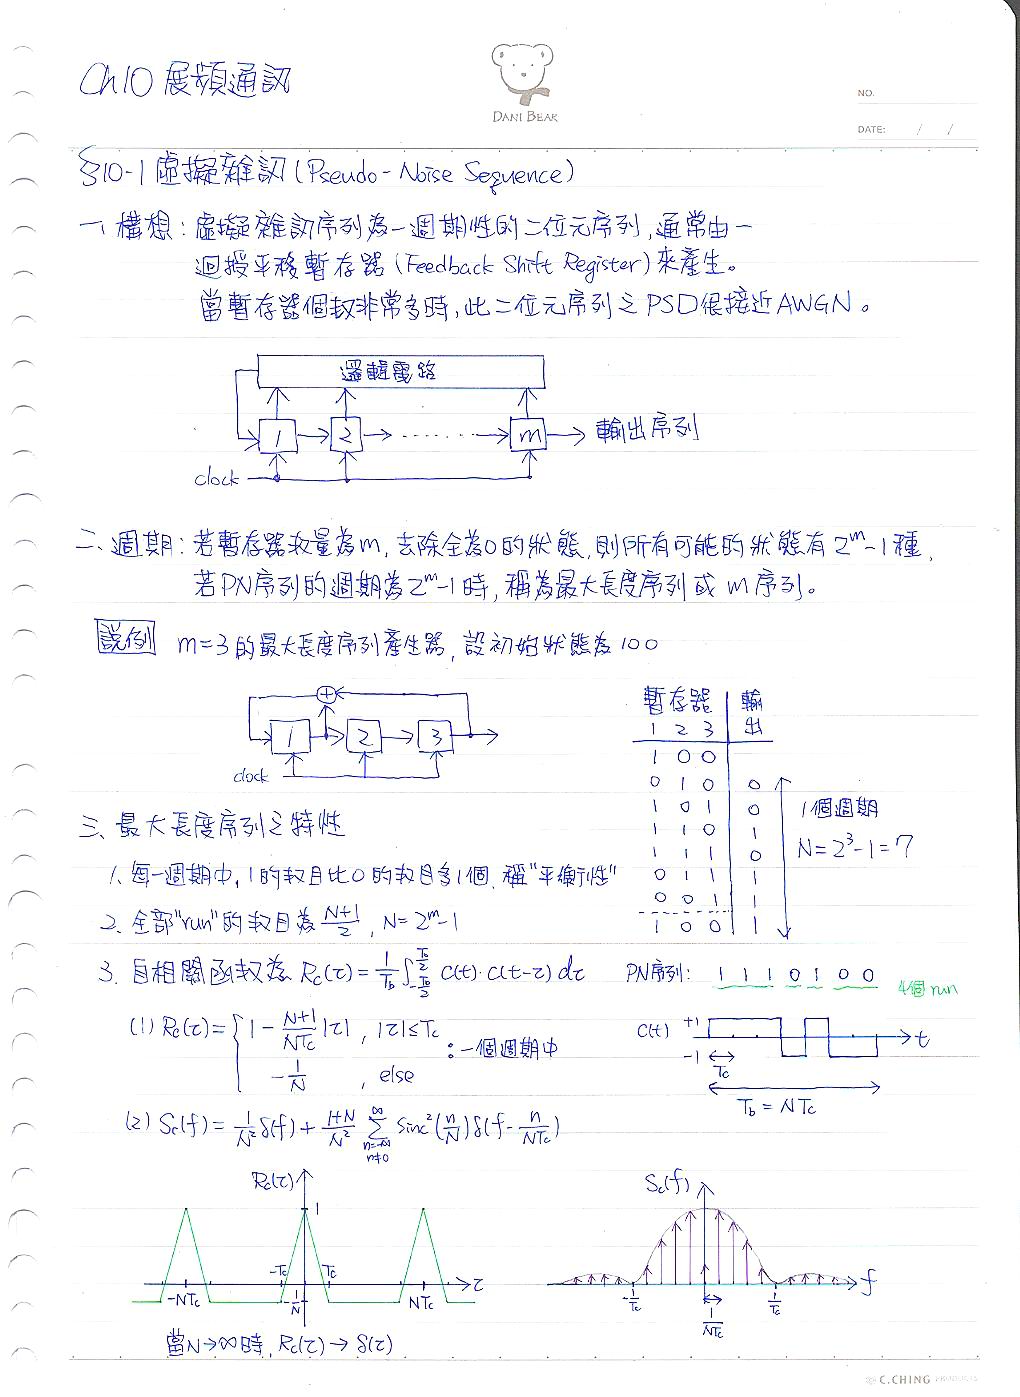 Ch10 展頻通訊
DANI BEAR
NO.
DATE: / /
§10-1 虛擬雜訊 (Pseudo-Noise Sequence)
一、構想：虛擬雜訊序列為一週期性的二位元序列,通常由一
迴授平移暫存器 (Feedback Shift Register) 來產生。
當暫存器個數非常多時,此二位元序列之PSD很接近AWGN。
邏輯電路
1 2 ...... m 輸出序列
clock
二、週期：若暫存器數量為m,去除全為0的狀態,則所有可能的狀態有2^m-1種,
若PN序列的週期為2^m-1時,稱為最大長度序列或m序列。
說例 m=3的最大長度序列產生器,設初始狀態為100
+
1 2 3
clock
暫存器 輸出
1 2 3
1 0 0
0 1 0 0
1 0 1 0
1 1 0 1
1 1 1 0
0 1 1 1
0 0 1 1
1 0 0 1
1個週期
N=2^3-1=7
三、最大長度序列之特性
1. 每一週期中,1的數目比0的數目多1個,稱"平衡性"
2. 全部"run"的數目為 (N+1)/2, N=2^m-1
3. 自相關函數為 Rc(τ)=1/Tb ∫_{-Tb/2}^{Tb/2} c(t)·c(t-τ) dτ
PN序列: 1 1 1 0 1 0 0
4個run
(1) Rc(τ)= { 1-(N+1)/(NTc)|τ| , |τ|≤Tc
-1/N , else
：一個週期中
c(t) +1 -1 t
Tc
Tb=NTc
(2) Sc(f)=1/N² δ(f)+(1+N)/N² Σ_{n=-∞, n≠0}^{∞} sinc²(n/N)δ(f-n/(NTc))
Rc(τ) 1
-NTc -Tc Tc NTc τ
-1/N
Sc(f)
-1/Tc 1/Tc f
1/NTc
當N→∞時, Rc(τ)→δ(τ)
© C.CHING PRODUCTS